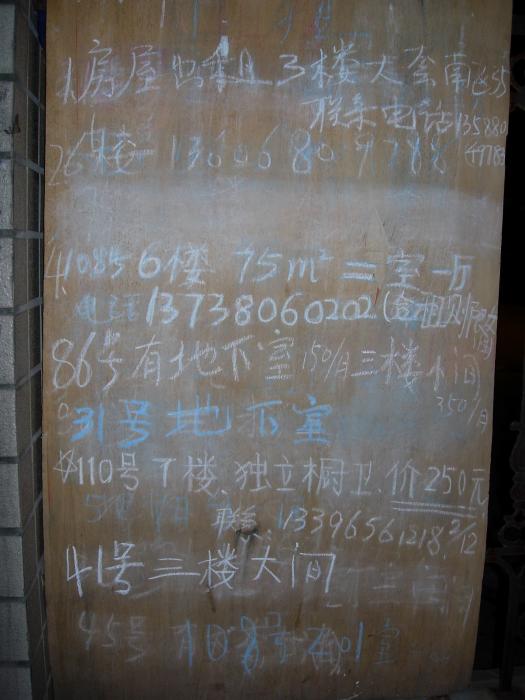 房屋出租 3楼大套南
联系电话135880
26 楼 13606809788
49783
6楼 75m² 二室一厅
电话 13738060202
86号有地下室 150/月 三楼小间
350/月
31号地下室
☆110号丁楼、独立橱卫、价250元
联系: 13396561218 2/12
41号三楼大间
三间
45号 有 室